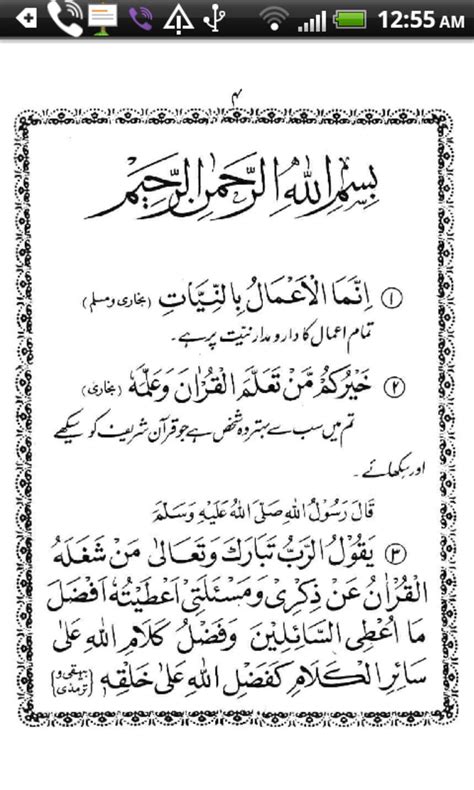 12:55 AM
۴
بِسْمِ اللهِ الرَّحْمٰنِ الرَّحِيْمِ
① اِنَّمَا الْاَعْمَالُ بِالنِّيَّاتِ (بخاری ومسلم)
تمام اعمال کا دارومدار نیت پر ہے۔
② خَيْرُكُمْ مَّنْ تَعَلَّمَ الْقُرْاٰنَ وَعَلَّمَهٗ (بخاری)
تم میں سب سے بہتر وہ شخص ہے جو قرآن شریف کو سیکھے
اور سکھائے۔
قَالَ رَسُوْلُ اللهِ صَلَّى اللهُ عَلَيْهِ وَسَلَّمَ
③ يَقُوْلُ الرَّبُّ تَبَارَكَ وَتَعَالٰى مَنْ شَغَلَهُ
الْقُرْاٰنُ عَنْ ذِكْرِيْ وَمَسْئَلَتِيْ اَعْطَيْتُهٗ اَفْضَلَ
مَا اُعْطِي السَّائِلِيْنَ وَفَضْلُ كَلَامِ اللهِ عَلٰى
سَائِرِ الْكَلَامِ كَفَضْلِ اللهِ عَلٰى خَلْقِهٖ {بیہقی و ترمذی}